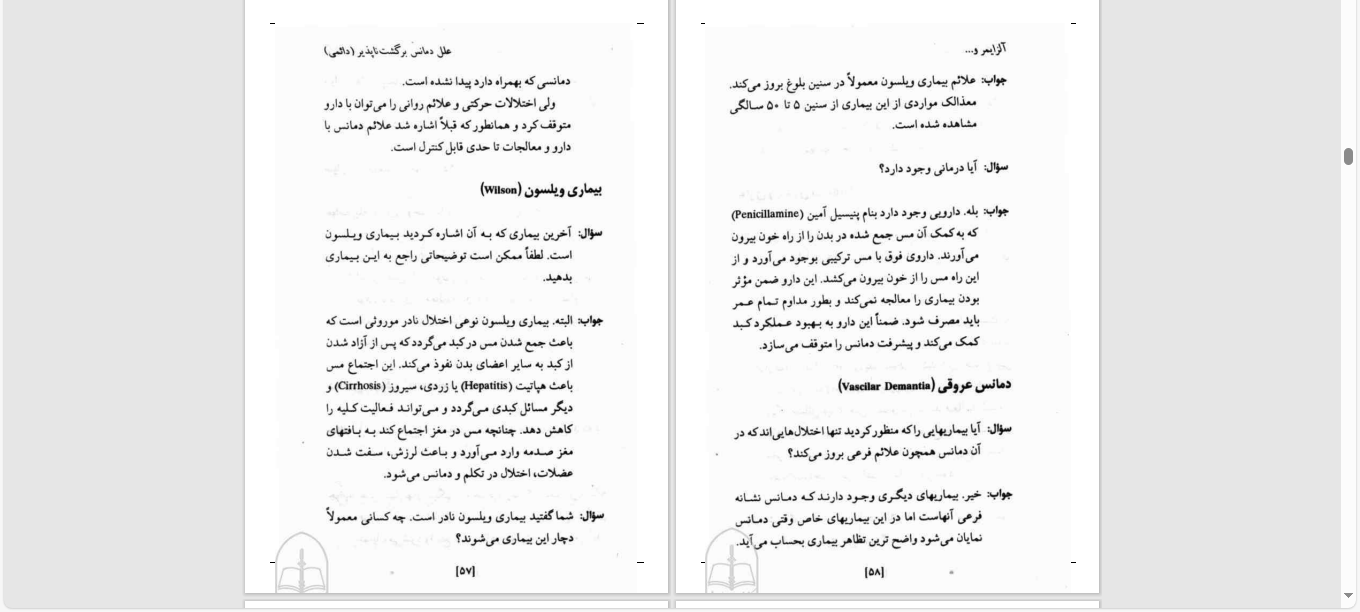 علل دمانس برگشت‌ناپذیر (دائمی)
دمانسی که بهمراه دارد پیدا نشده است.
ولی اختلالات حرکتی و علائم روانی را می‌توان با دارو
متوقف کرد و همانطور که قبلاً اشاره شد علائم دمانس با
دارو و معالجات تا حدی قابل کنترل است.
بیماری ویلسون (Wilson)
سؤال: آخرین بیماری که به آن اشاره کردید بیماری ویلسون
است. لطفاً ممکن است توضیحاتی راجع به این بیماری
بدهید.
جواب: البته. بیماری ویلسون نوعی اختلال نادر موروثی است که
باعث جمع شدن مس در کبد می‌گردد که پس از آزاد شدن
از کبد به سایر اعضای بدن نفوذ می‌کند. این اجتماع مس
باعث هپاتیت (Hepatitis) یا زردی، سیروز (Cirrhosis) و
دیگر مسائل کبدی می‌گردد و می‌تواند فعالیت کلیه را
کاهش دهد. چنانچه مس در مغز اجتماع کند به بافتهای
مغز صدمه وارد می‌آورد و باعث لرزش، سفت شدن
عضلات، اختلال در تکلم و دمانس می‌شود.
سؤال: شما گفتید بیماری ویلسون نادر است. چه کسانی معمولاً
دچار این بیماری می‌شوند؟
[۵۷]
آلزایمر و...
جواب: علائم بیماری ویلسون معمولاً در سنین بلوغ بروز می‌کند.
معذالک مواردی از این بیماری از سنین ۵ تا ۵۰ سالگی
مشاهده شده است.
سؤال: آیا درمانی وجود دارد؟
جواب: بله. دارویی وجود دارد بنام پنیسیل آمین (Penicillamine)
که به کمک آن مس جمع شده در بدن را از راه خون بیرون
می‌آورند. داروی فوق با مس ترکیبی بوجود می‌آورد و از
این راه مس را از خون بیرون می‌کشد. این دارو ضمن مؤثر
بودن بیماری را معالجه نمی‌کند و بطور مداوم تمام عمر
باید مصرف شود. ضمناً این دارو به بهبود عملکرد کبد
کمک می‌کند و پیشرفت دمانس را متوقف می‌سازد.
دمانس عروقی (Vascilar Demantia)
سؤال: آیا بیماریهایی را که منظور کردید تنها اختلال‌هایی‌اند که در
آن دمانس همچون علائم فرعی بروز می‌کند؟
جواب: خیر. بیماریهای دیگری وجود دارند که دمانس نشانه
فرعی آنهاست اما در این بیماریهای خاص وقتی دمانس
نمایان می‌شود واضح ترین تظاهر بیماری بحساب می‌آید.
[۵۸]